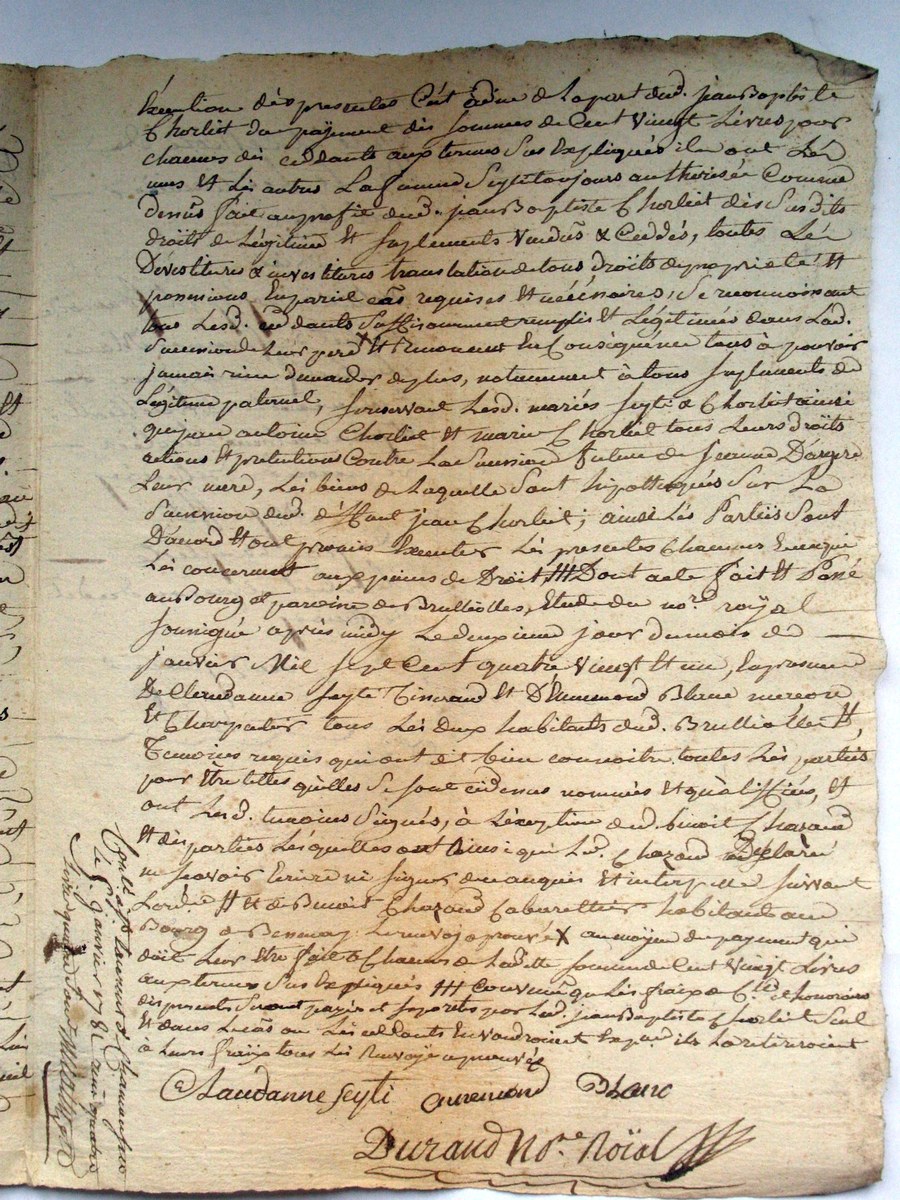 Exécution des presentes C'est adire de Lapart dud. jean Baptiste
Chorliet du payement des sommes de Cent Vingt Livres pour
chacuns des ceddants aux termes Sus Expliqués ils ont Les
unes Et Les autres La femme Seyti toujours authorisée Comme
dessus fait au profit dud. jean Baptiste Chorliet des Susdits
droits de Légitime Et Suplements Vendus & Ceddés, toutes Les
Devestitures & investitures translation de tous droits de proprieté Et
possessions En pareil cas requises Et nécéssaires, Se reconnoissant
tous Lesd. ceddants Suffisamment remplis Et Légitimés dans Lad.
Succession de Leur pere X Et Renoncent En Conséquence tous à pouvoir
jamais rien demander de plus, notamment à tous Suplements de
Légitime paternel, se reservant Lesd. mariés Seyti & Chorliet ainsi
que jean antoine Chorliet Et marie Chorliet tous Leurs droits
actions Et pretentions Contre La Succession future de jeanne
Leur mere, Les biens de Laquelle Sont hipottéqués Sur La
Succession dud. déffunt jean Chorliet; ainsi Les Partiës Sont
D'acord Et ont promis Exécuter Les presentes Chacuns En ce qui
Les concernent aux peines de Droit /// Dont acte fait Et Passé
au Bourg et paroisse de Brulliolles, Etude du nore. royal
Soussigné après midy Le deuxieme jour du mois de
janvier Mil Sept Cent quatre Vingt Et un, En presence
De Claudanne Seyti Tisserand Et D'Ennemond Blanc
Et Charpentier tous Les deux habitants dud. Brulliolles #,
Temoins requis qui ont dit bien connoitre toutes Les parties
pour Etre telles qu'elles Se sont cidessus nommées Et qualiffiées, Et
ont Lesd. temoins Signés, à L'éxception dud. benoit Chazaud
Et des parties Lesquelles ont Ainsi que Led. Chazaud Déclaré
ne Scavoir Ecrire ni Signer de ce enquis Et interpellé Suivant
Lord.ce # Et de Benoit Chazaud Cabarettier habitant au
Bourg de Bessenay Le renvoy aprouvé X au moyen du payement qui
doit Leur Etre fait à Chacuns de Laditte Somme de Cent Vingt Livres
aux termes Sus Expliqués /// Convenu que Les fraix de C.lle & honoraires
des presentes Seront payés et suportés par Led. jean Baptiste Chorliet Seul
Et dans Le cas ou Les ceddants En voudroient Exp.on ils La retireroient
à Leurs fraix tous Les Renvoys aprouvés
Claudanne Seyti Annemond Blanc
Durand No.re Roïal
le 5. janvier 1781